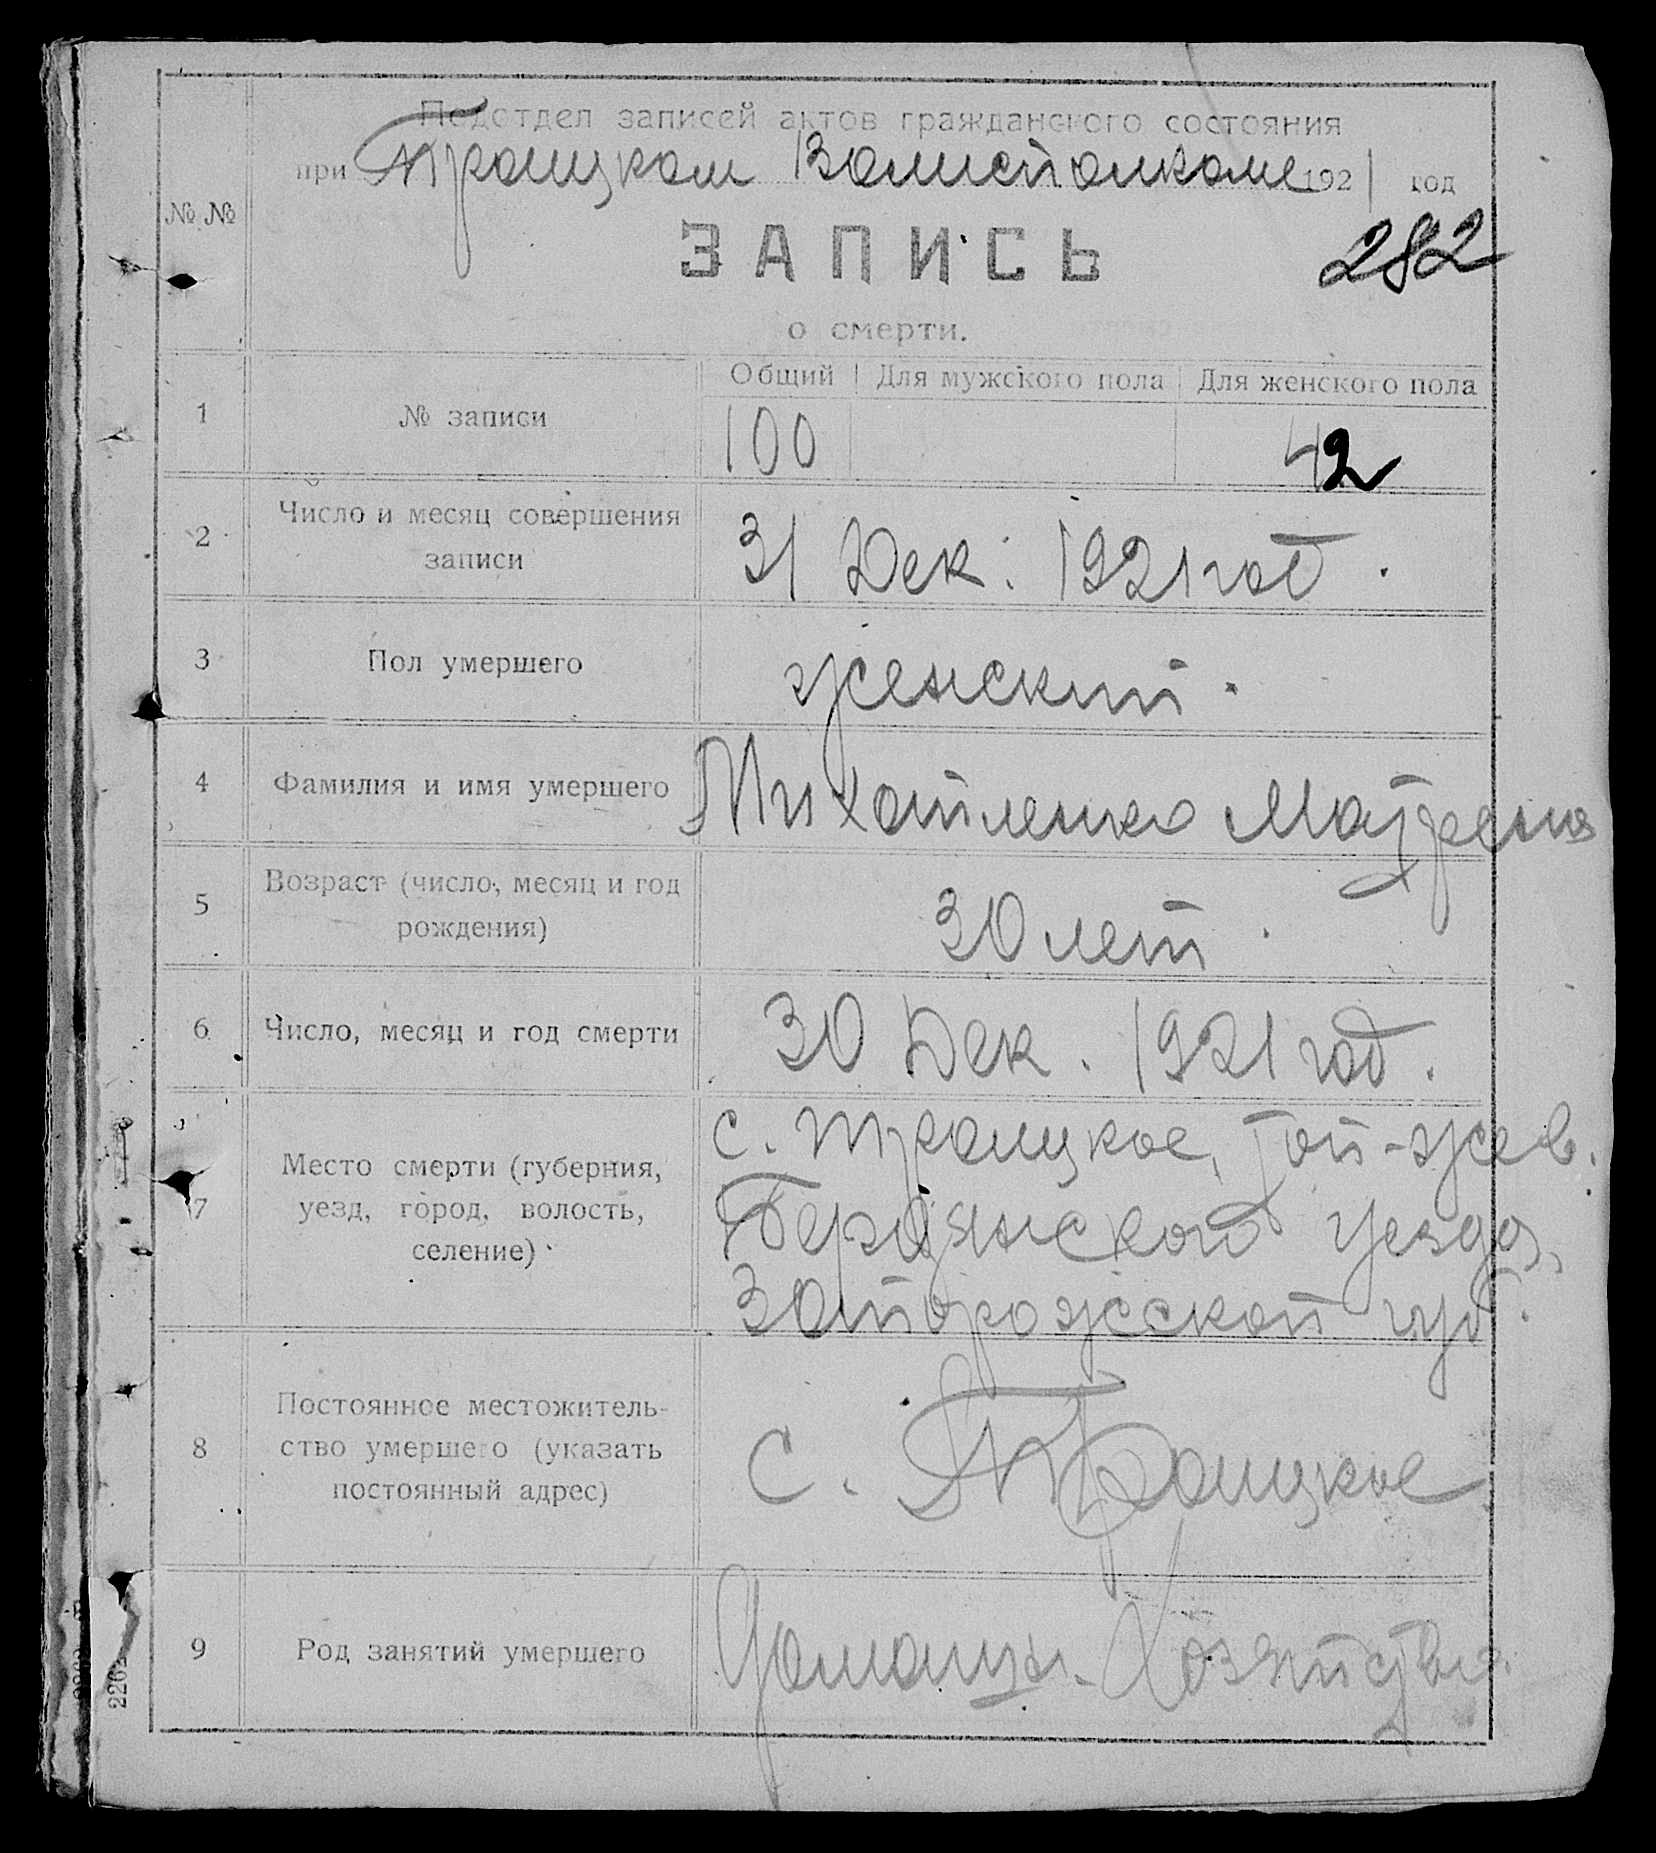 Подотдел записей актов гражданского состояния
при Троицком Волисполкоме 1921 год
№ № ЗАПИСЬ 282
о смерти.
Общий Для мужского пола Для женского пола
1 № записи 100 42
2 Число и месяц совершения
записи 31 Дек. 1921 год.
3 Пол умершего женский.
4 Фамилия и имя умершего Матрена
5 Возраст (число, месяц и год
рождения) 30 лет.
6 Число, месяц и год смерти 30 Дек. 1921 год.
7 Место смерти (губерния,
уезд, город, волость,
селение)
с. Троицкое, той-же в.
Бердянской уезда,
Запорожской губ.
8 Постоянное местожитель-
ство умершего (указать
постоянный адрес)
с. Троицкое
9 Род занятий умершего